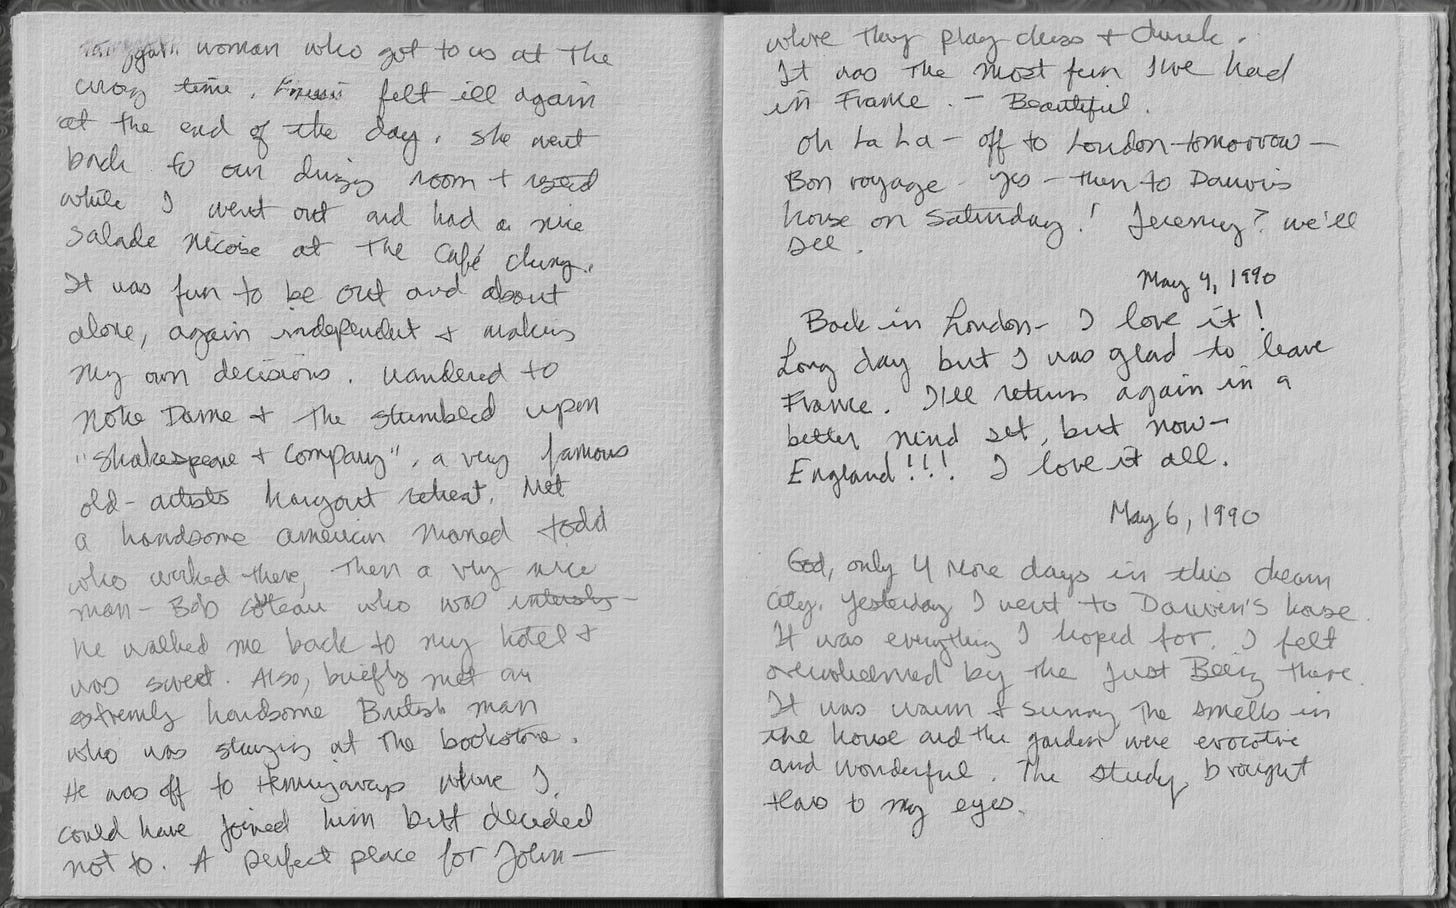 again woman who got to us at the
wrong time. felt ill again
at the end of the day. She went
back to our dingy room + rested
while I went out and had a nice
Salade Nicoise at the Café Cluny.
It was fun to be out and about
alone, again independent + making
my own decisions. Wandered to
Notre Dame + the stumbled upon
"Shakespeare + Company", a very famous
old - artists hangout retreat. Met
a handsome American named Todd
who worked there, then a very nice
man - Bob who was
he walked me back to my hotel +
was sweet. Also, briefly met an
extremely handsome British man
who was staying at the bookstore.
He was off to Hemingways where I
could have joined him but decided
not to. A perfect place for John —
where they play chess + drink.
It was the most fun I've had
in France. - Beautiful.
Oh La La - off to London tomorrow -
Bon voyage - yes - then to Darwin's
house on Saturday! Jeremy? we'll
see.
May 4, 1990
Back in London - I love it!
Long day but I was glad to leave
France. I'll return again in a
better mind set, but now -
England!!! I love it all.
May 6, 1990
God, only 4 more days in this dream
city. Yesterday I went to Darwin's house.
It was everything I hoped for. I felt
overwhelmed by the Just Being there.
It was warm + sunny the smells in
the house and the garden were evocative
and wonderful. The study brought
tears to my eyes.